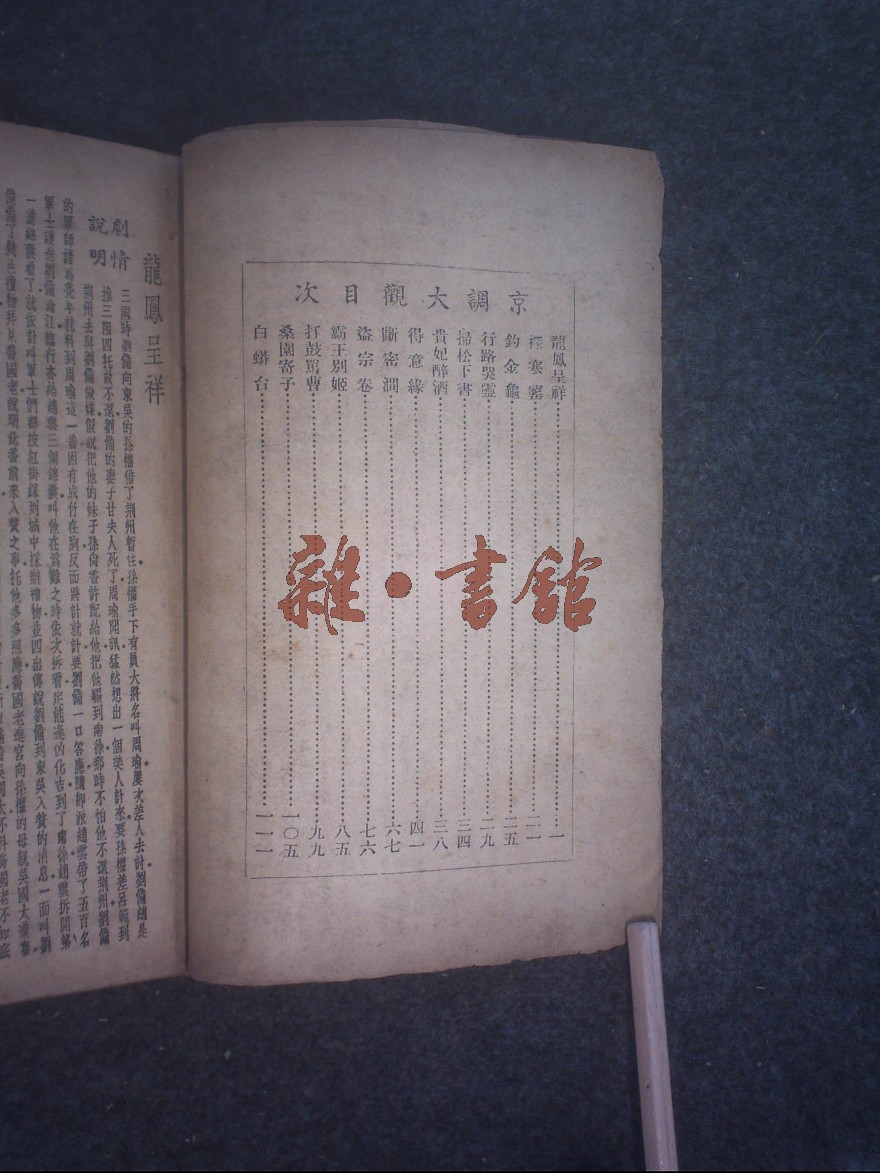 京調大觀目次
龍鳳呈祥……一
探寒窰……二一
釣金龜……二五
行路哭靈……二九
掃松下書……三四
貴妃醉酒……三八
得意緣……四一
斷密澗……六七
盜宗卷……七六
霸王別姬……八五
打鼓罵曹……九九
桑園寄子……一〇五
白蟒台……一一一
龍鳳呈祥
劇情
說明
三國時劉備向東吳的孫權借了荆州暫住。孫權手下有員大將名叫周瑜屢次差人去討劉備總是
推三阻四托故不還。劉備的妻子甘夫人死了周瑜聞訊猛然想出一個美人計來要孫權差呂範到
荆州去與劉備做媒假說把他的妹子孫尙香許配給他把他騙到南徐那時不怕他不還荆州。劉備
的軍師諸葛亮早就料到周瑜這一番因有成竹在胸反而將計就計要劉備一口答應隨卽派趙雲帶了五百名
軍士護送劉備過江臨行亦給趙雲三個錦囊叫他在爲難之時依次拆看定能逢凶化吉。到了南徐趙雲拆開第
一個錦囊看了就依計叫軍士們都披紅掛綵到城中採辦禮物並四出傳說劉備到東吳入贅的消息一面叫劉
備備了幾色禮物拜見喬國老說明此番前來入贅之事托他多多照應。喬國老進宮向孫權的母親吳國太道喜
吳國太不料喬國老不知底
雜·書館